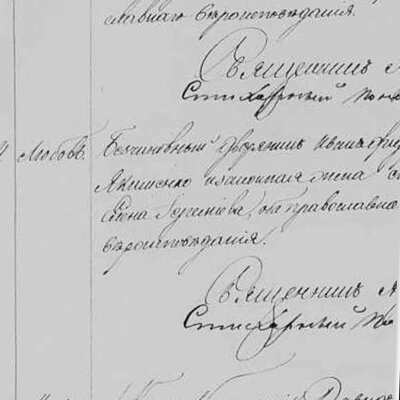 славнаго вѣроисповѣданія.
Священникъ
Стихарный
Любовь.
Безчиновный дворянинъ Иванъ
Якименко и законная жена
Елена Сергиева, оба православнаго
вѣроисповѣданія.
Священникъ
Стихарный